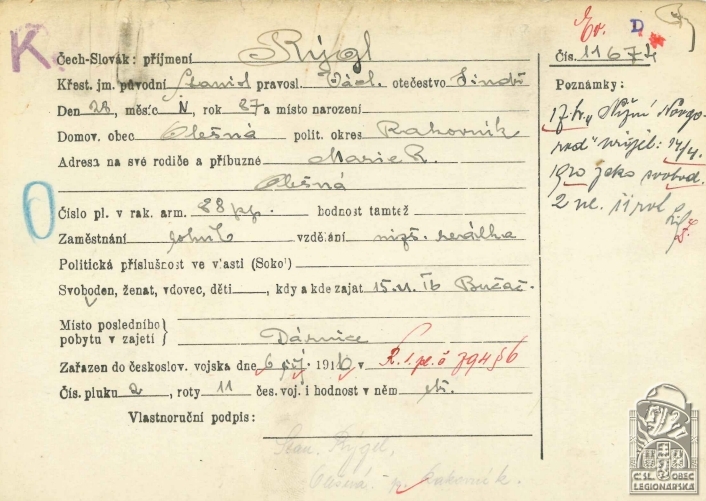 K.
Ev. D
Čech-Slovák: příjmení Rýgl
Čís. 11674
Křest. jm. původní Stanisl pravosl. Václ. otečestvo Jindř
Poznámky:
Den 28, měsíc IV, rok 87 a místo narození
Domov. obec Olešná polit. okres Rakovník
Adresa na své rodiče a příbuzné Marie R.
Olešná
Číslo pl. v rak. arm. 88 pp. hodnost tamtéž
Zaměstnání rolník vzdělání
Politická příslušnost ve vlasti (Sokol)
Svoboden, ženat, vdovec, děti, kdy a kde zajat 15. 16 Bučač.
Místo posledního pobytu v zajetí} Dárnice
Zařazen do českoslov. vojska dne 6 1916 v R. 1. pl. č 79456
Čís. pluku 2, roty 11 čes. voj. i hodnost v něm
Vlastnoruční podpis:
Stan. Rýgl,
Olešná p. Rakovník.
17. "Nižní Novgorod" 14/4.
1920 jako svobod.
ČS. OBEC
LEGIONÁŘSKÁ